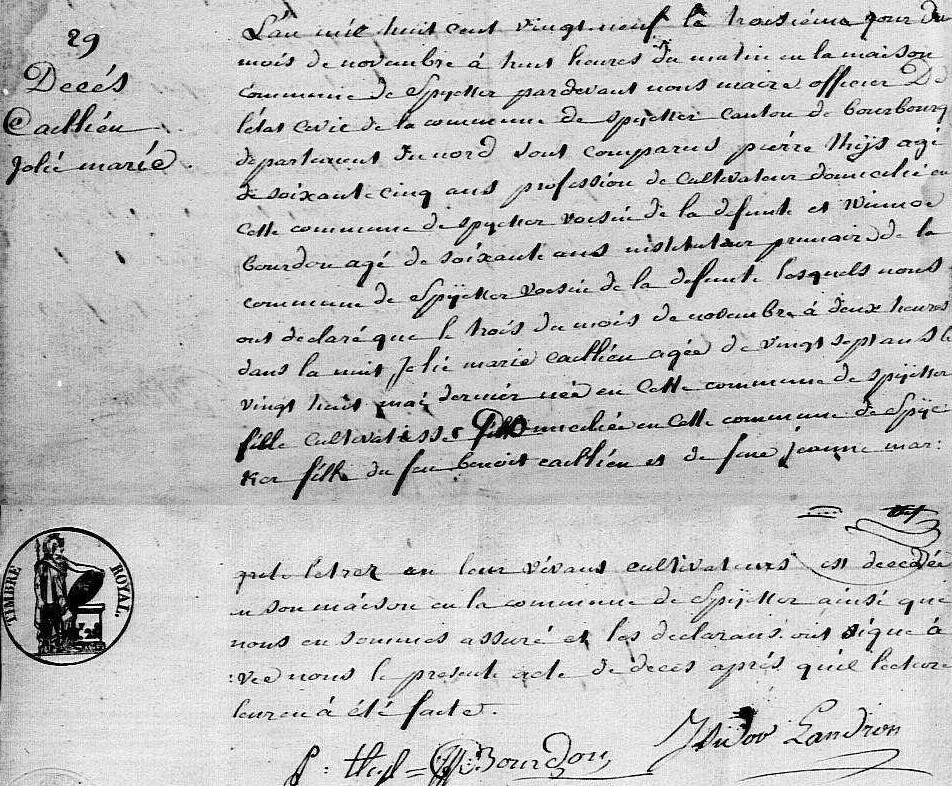 29
Decés
Cailliéu
Jolié marié
L'an mil huit cent vingt neuf le troisiéme jour du
mois de novembre à huit heures du matin en la maison
commune de Spijcker pardevant nous maire officier De
létat civil de la commune de Spijcker Canton de bourbourg
departement du nord sont comparus piérre thijs agé
de soixante cinq ans profession de Cultivateur domicilié en
Cette commune de Spijcker voisin de la defunte et Winnoc
bourdon agé de soixante ans instituteur primaire de la
commune de Spijcker voisin de la defunte lesquels nous
ont declaré que le trois du mois de novembre à deux heures
dans la nuit Jolié marie cailliéu agée de vingt sept ans le
vingt huit mai dernier née en Cette commune de Spijcker
fille cultivatrisse Domiciliée en Cette commune de Spijc
ker fille du feu benoit cailliéu et de feue jeanne mar:
letrez en leur vivans cultivateurs est decedée
en son maison en la commune de Spijcker ainsi que
nous en sommes assuré et les declarans ont signe à
:vec nous le presente acte de deces aprés qu'il lecture
leur en à été faite.
P: thijs = W Bourdon Isidor Landron
TIMBRE ROYAL.